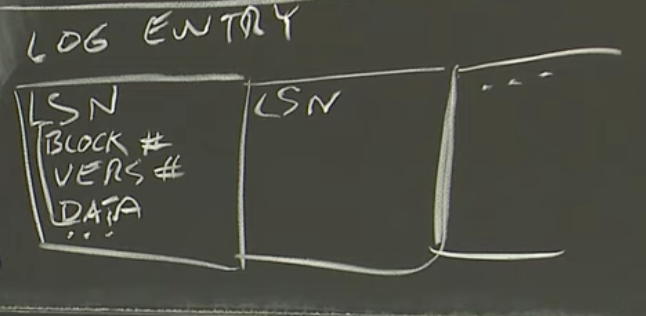 LOG ENTRY
LSN
BLOCK #
VERS #
DATA
...
LSN
...